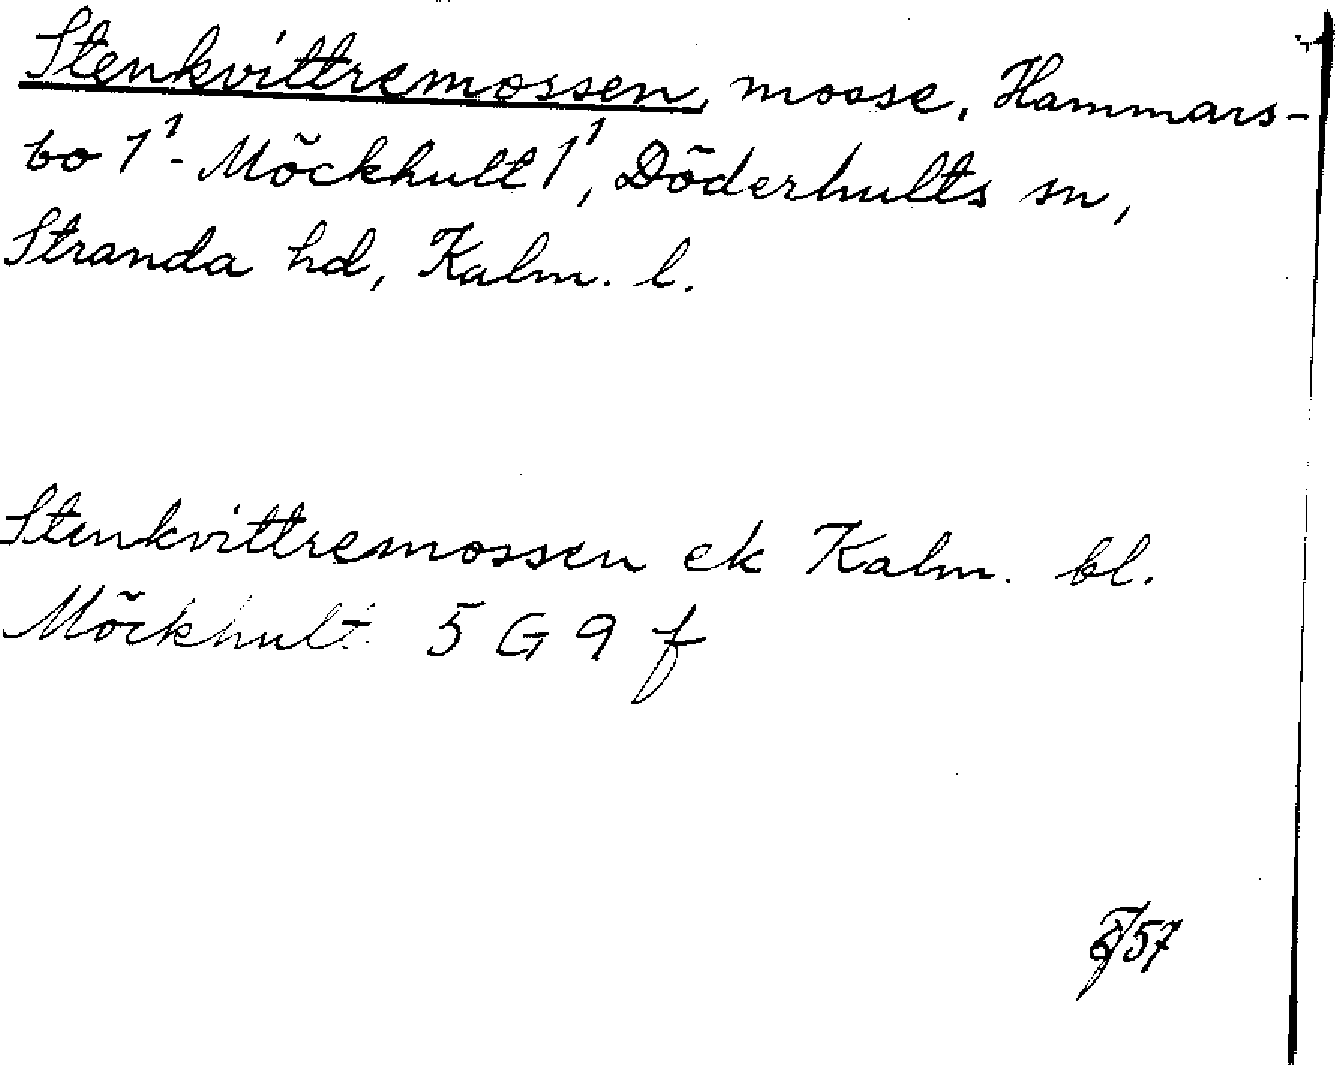 Stenkvittremossen, mosse, Hammars-
bo 1¹ - Möckhult 1¹, Döderhults sn,
Stranda hd, Kalm. l.
Stenkvittremossen ek Kalm. bl.
Möckhult 5 G 9 f